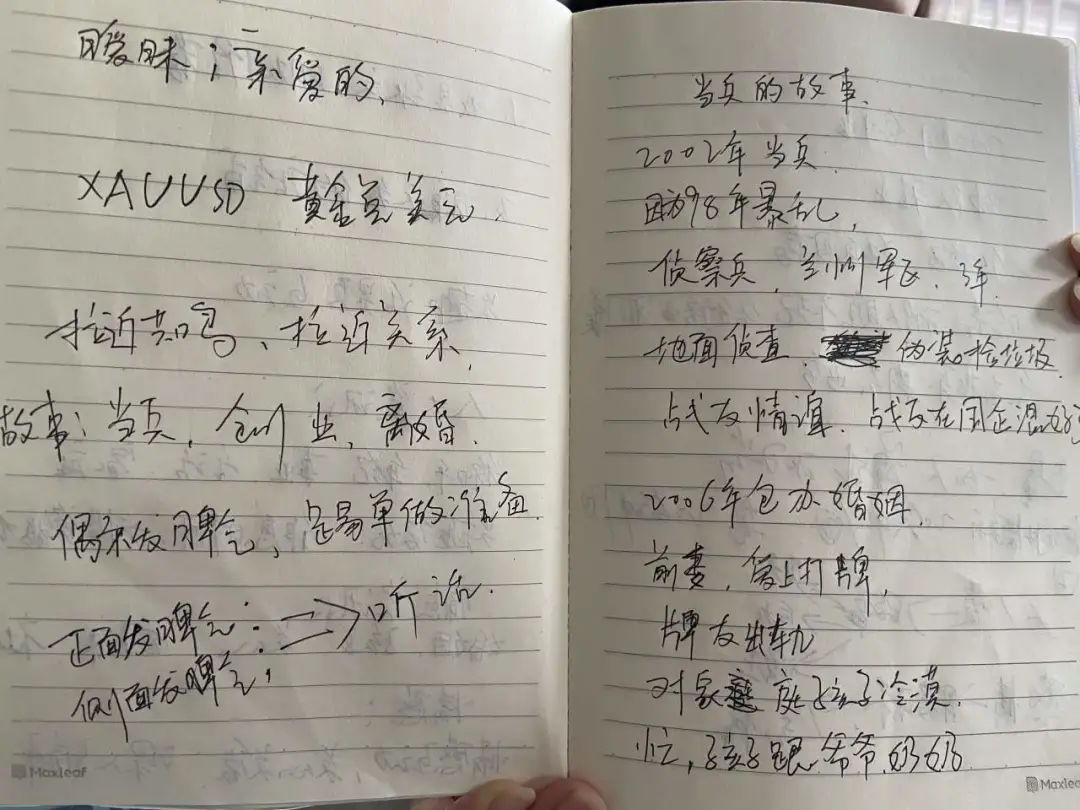 暧昧；亲爱的、
XAUUSD 黄金兑美元，
拉近共鸣、拉近关系，
故事：当兵，创业，离婚．
偶尔发脾气，是易单做准备．
正面发脾气：⇒听话．
侧面发脾气；
Maxleaf
当兵的故事．
2002年当兵．
因为98年暴乱，
侦察兵，兰州军区．3年．
地面侦查， 伪装捡垃圾．
战友情谊．战友在国企混的好
2006年包办婚姻，
前妻，爱上打牌，
牌友出轨
对家庭孩子冷漠．
忙，孩子跟爷爷奶奶．
Maxleaf